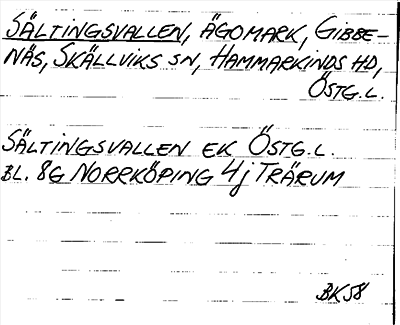 SÄLTINGSVALLEN, ÄGOMARK, GIBBE-
NÄS, SKÄLLVIKS SN, HAMMARKINDS HD,
ÖSTG.L.
SÄLTINGSVALLEN EK ÖSTG.L.
BL. 8G NORRKÖPING 4j TRÄRUM
BK58